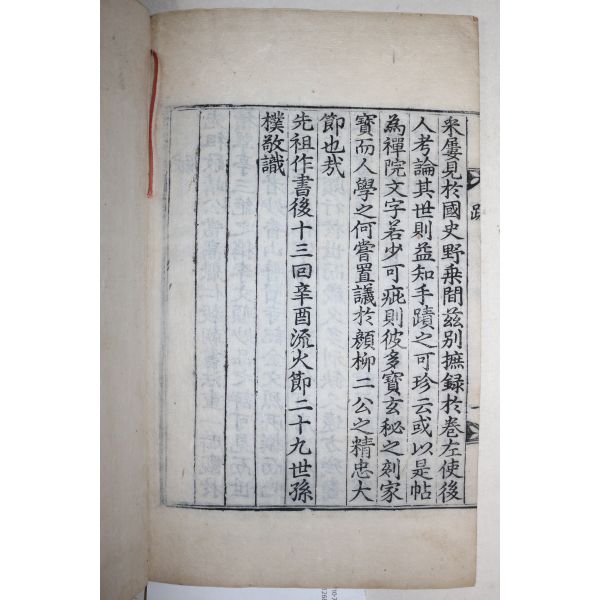 采屢見於國史野乗間玆別摭録於卷左使後
人考論其世則益知手蹟之可珍云或以是帖
為禪院文字若少可疵則彼多寶玄秘之刻家
寶而人學之何嘗置議於顔柳二公之精忠大
節也㦲
先祖作書後十三回辛酉流火節二十九世孫
樸敬識
跋